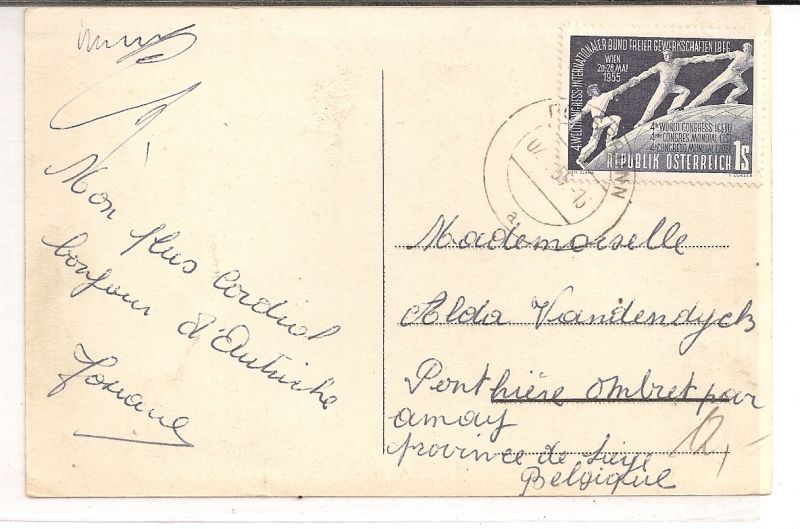 Mon plus cordial
bonjour d'Autriche
4. WELTKONGRESS·INTERNATIONALER BUND FREIER GEWERKSCHAFTEN IBFG
WIEN
20-28. MAI
1955
4th WORLD CONGRESS ICFTU
4ème CONGRES MONDIAL CISL
4º CONGRESO MUNDIAL CIOSL
REPUBLIK ÖSTERREICH 1S
Mademoiselle
Alda Vandendyck
Ponthière Ombret par
amay
province de Liège
Belgique